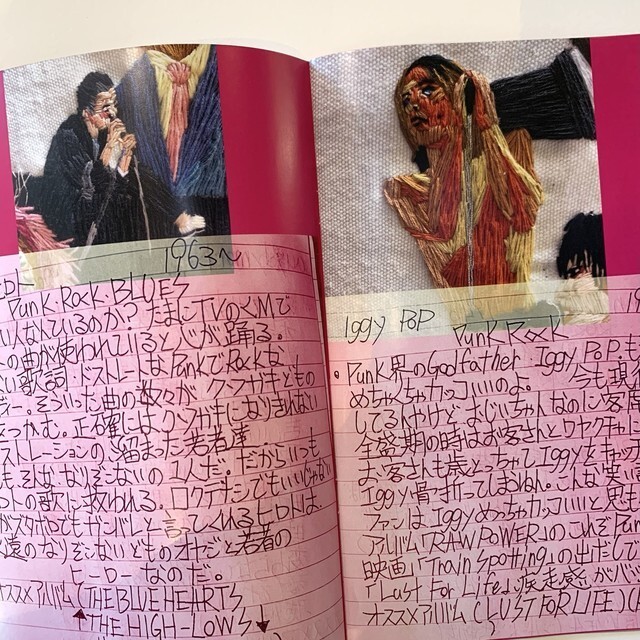 ヒロト 1963〜
PUNK.ROCK.BLUES
い人なんているのか？たまにTVのCMで
の曲が使われていると心が踊る。
い歌詞.ドストレートなPUNKでROCKな
そういった曲の数々が クソガキどもの
をつかむ。正確にはクソガキになりきれない
ストレーションの溜まった若者達…
そんな なりそこないの1人だ。だからいつも
の歌に救われる。ロクデナシでもいいじゃない
ドスカボロでもガンバレと言ってくれるヒロトは.
永遠のなりそこないどものオヤジと若者の
ヒーローなのだ。
オススメアルバム(THE BLUE HEARTS
THE HIGH-LOWS
Iggy POP 19
PUNK ROCK
PUNK界のGodfather Iggy POP.も
めちゃちゃカッコいいのよ。 今も現
してるんやけど、おじいちゃんなのに客席
全盛期の時はお客さんとワヤクチャに
お客さんも歳とっちゃってIggyをキャッ
Iggy骨折ってしまうねん。こんな笑
ファンは Iggyめっちゃカッコいいと思
アルバム「RAW POWER」のこれぞPun
映画「Train Spotting」の出だして
「Lust For Life」疾走感がハ
オススメアルバム(LUST FOR LIFE)(